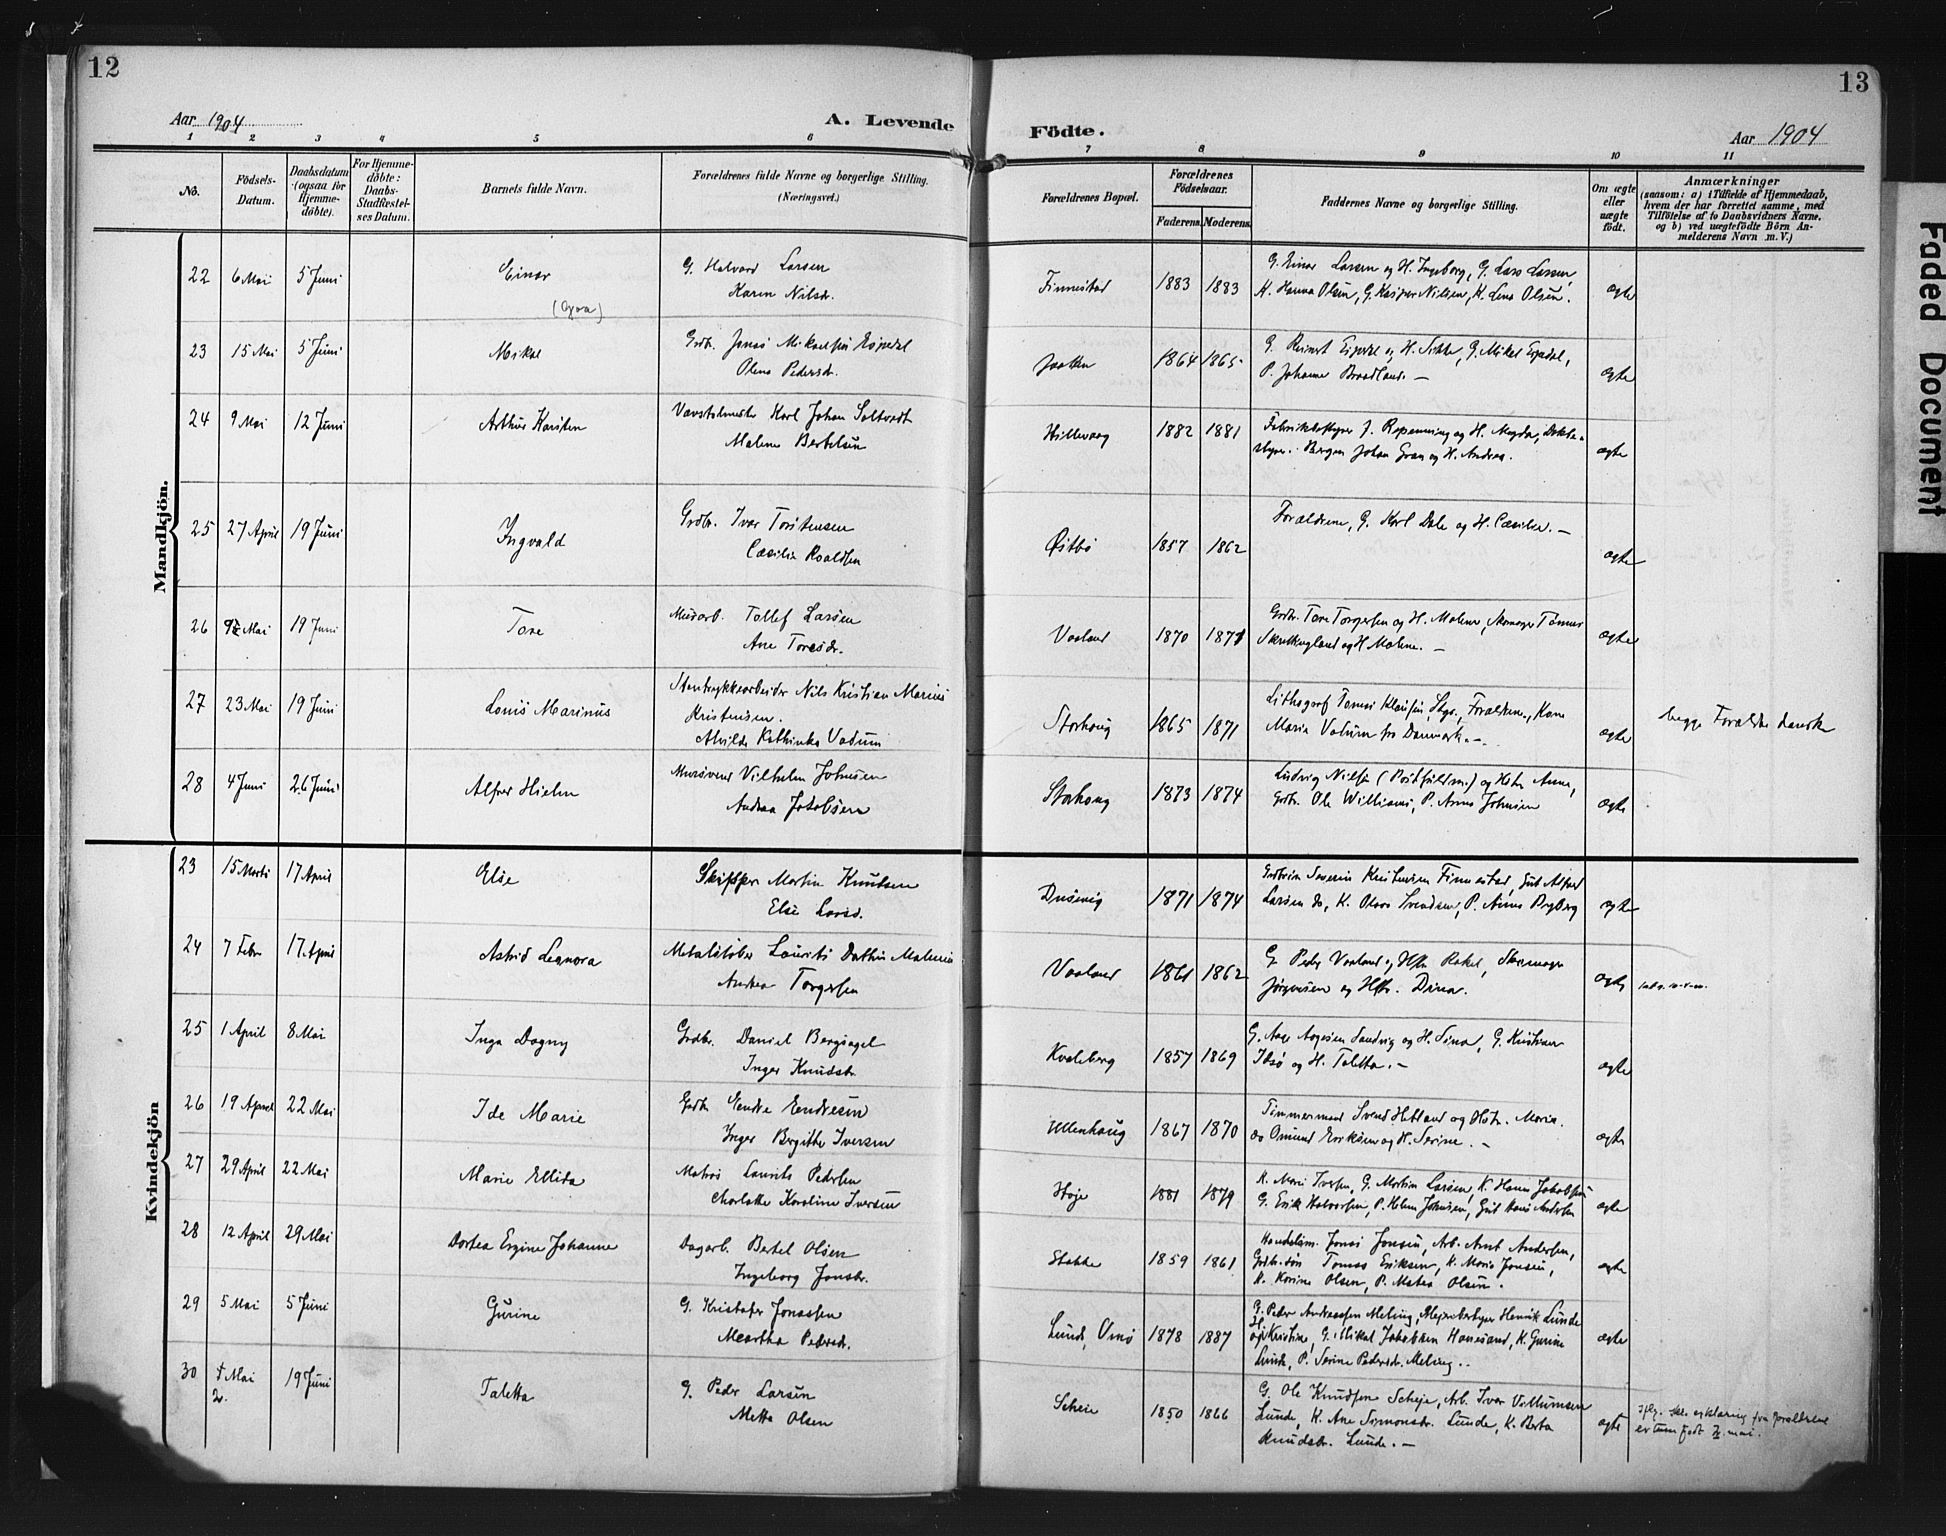 12
13
Aar 1904
A. Levende
Födte.
Aar 1904
1 2 3 4 5 6 7 8 9 10 11
No.
Födsels-Datum.
Daabsdatum (ogsaa for Hjemmedöbte).
For Hjemmedöbte: Daabs-Stadfæstelses Datum.
Barnets fulde Navn.
Forældrenes fulde Navne og borgerlige Stilling.
(Næringsvei.)
Forældrenes Bopæl.
Forældrenes Födselsaar.
Faderens. Moderens.
Faddernes Navne og borgerlige Stilling.
Om ægte eller uægte födt.
Anmærkninger
(saasom: a) i Tilfælde af Hjemmedaab, hvem der har forrettet samme, med Tilföielse af to Daabsvidners Navne. og b) ved uægtefödte Börn Anmelderens Navn m.V.)
Mandkjön.
22 6 Mai 5 Juni Einar G. Halvard Larsen
Karen Nilsdr. Finnestad 1883 1883 G. Einar Larsen og H. Ingeborg, G. Lars Larsen,
K. Hanna Olsen, G. Kasper Nilsen, K. Lena Olsen. ægte
23 15 Mai 5 Juni Mikal Grdbr. Jonas Mikaelsen Espedal
Olena Pedersdr. 1864 1865 G. Reinert Espedal og H. Sikke, G. Mikal Espedal,
P. Johanne Braadland. — ægte
24 9 Mai 12 Juni Arthur Karsten Karl Johan Saltvedt
Malene Bertelsen Hillevaag 1882 1881 Fabrikbestyrer J. Repenning og H. Magda,
Bergen Johan Gran og H. Andrea. ægte
25 27 April 19 Juni Ingvald Grdbr. Ivar Torstensen
Cæcilia Roaldsen Østbø 1857 1862 Forældrene, G. Karl Dale og H. Cæcilie. — ægte
26 Mai 19 Juni Tore Murarb. Tollef Larsen
Ane Toresdr. Vaaland 1870 1871 Grdbr. Tore Torgersen og H. Malene, Skomager Tønnes
og H. Malene. — ægte
27 23 Mai 19 Juni Louis Marinus Stentrykkearbeider Nils Kristian Marius
Kristensen.
Alvilda Kathinka Vadum Storhaug 1865 1871 Lithograf Tomas Klausen, Stgr., Forældrene, Kone
Maria Vadum fra Danmark. — ægte begge Forældre danske
28 4 Juni 26 Juni Alfred Hjelm Mursvend Vilhelm Johnsen
Andrea Jakobsen Storhaug 1873 1874 Ludvig Nilsen (Postfuldm.) og Hstr. Anna,
Grdbr. Ole Williams, P. Anna Johnsen ægte
Kvindekjön
23 15 Marts 17 April Else Skipper Martin Knutsen
Else Larsd. Dusevig 1871 1874 Severin Kristensen Finnestad, Gut Alfred
Larsen do, K. Olava Svendsen, P. Anna Rygberg ægte
24 7 Febr 17 April Astrid Leonora Metalstøber Laurits Dathus Malmin
Andrea Torgersen Vaaland 1861 1862 G. Peder Vaaland og Hstr. Rakel, Skomager
Jørgensen og Hstr. Dina. ægte
25 1 April 8 Mai Inga Dagny Grdbr. Daniel Bergsagel
Inger Knudsdr. Kvaleberg 1857 1869 G. Aage Aagesen Sandvig og H. Sina, G. Kristian
Idsø og H. Taletta. — ægte
26 19 April 22 Mai Ida Marie Grdb. Endre Endresen
Inger Bergitte Iversen Ullenhaug 1867 1870 Tømmermand Svend Hetland og Hstr. Maria.
do Omund Eriksen og H. Serine. — ægte
27 29 April 22 Mai Marie Ellida Matros Laurits Pedersen
Charlotte Karoline Iversen Høje 1881 1879 K. Mari Iversen, G. Martin Larsen, K. Hanna Jakobsen
G. Erik Halvorsen, P. Helene Johnsen, Gut Hans Andersen ægte
28 12 April 29 Mai Dortea Ergine Johanne Dagarb. Bertel Olsen
Ingeborg Jonsdr. Stokke 1859 1861 Handelsm. Jonas Jonsen, Arb. Arnt Andersen,
Grdbr.søn Tomas Eriksen, K. Maria Jonsen,
K. Karine Olsen, P. Matea Olsen. ægte
29 5 Mai 5 Juni Gurine G. Kristofer Jonassen
Meartha Pedersdr. Lunde, Vmø 1878 1887 G. Peder Andreassen Meling, Henrik Lunde
og H. Kristine, G. Mikal Jakobsen Hanesand, K. Gurine
Lunde, P. Serine Pedersdr. Meling. — ægte
30 2 Mai 19 Juni Taletta G. Peder Larsen
Metta Olsen Scheie 1850 1866 G. Ole Knudsen Scheje, Arb. Iver Villumsen
Lunde, K. Ane Simonsdr. Lunde, K. Berta
Knudsdr. Lunde. — ægte erklæring fra forældrene
er født 2. mai.
Faded Document